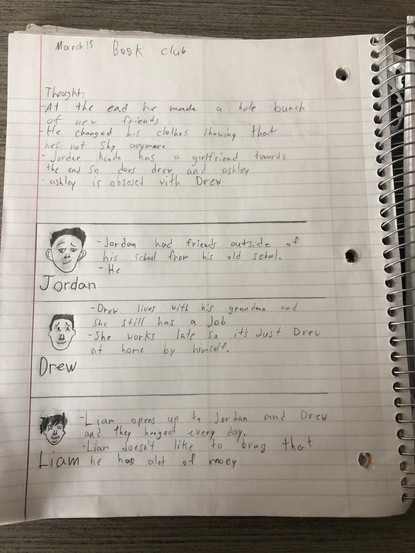 March 15 Book club
Thoughts
-At the end he made a hole bunch
of new friends
-He changed his clothes showing that
hes not shy anymore
-Jordan kinda has a girlfriend towards
the end so does drew and ashley
-ashley is obsesed with Drew
-Jordan had friends outside of
his school from his old school.
-He
Jordan
-Drew lives with his grandma and
she still has a job
-She works late so its Just Drew
at home by himself.
Drew
-Liam opens up to Jordan and Drew
and they hangout every day.
-Liam doesn't like to brag that
Liam he has alot of moey